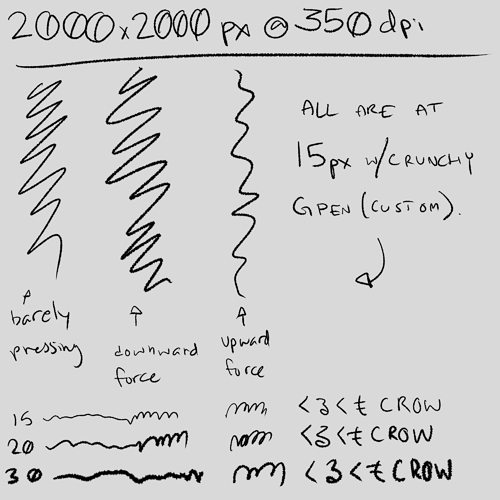 2000x2000 px @ 350 dpi
ALL ARE AT
15px w/CRUNCHY
GPEN (CUSTOM).
barely
pressing
downward
force
upward
force
15
CROW
20
CROW
30
CROW